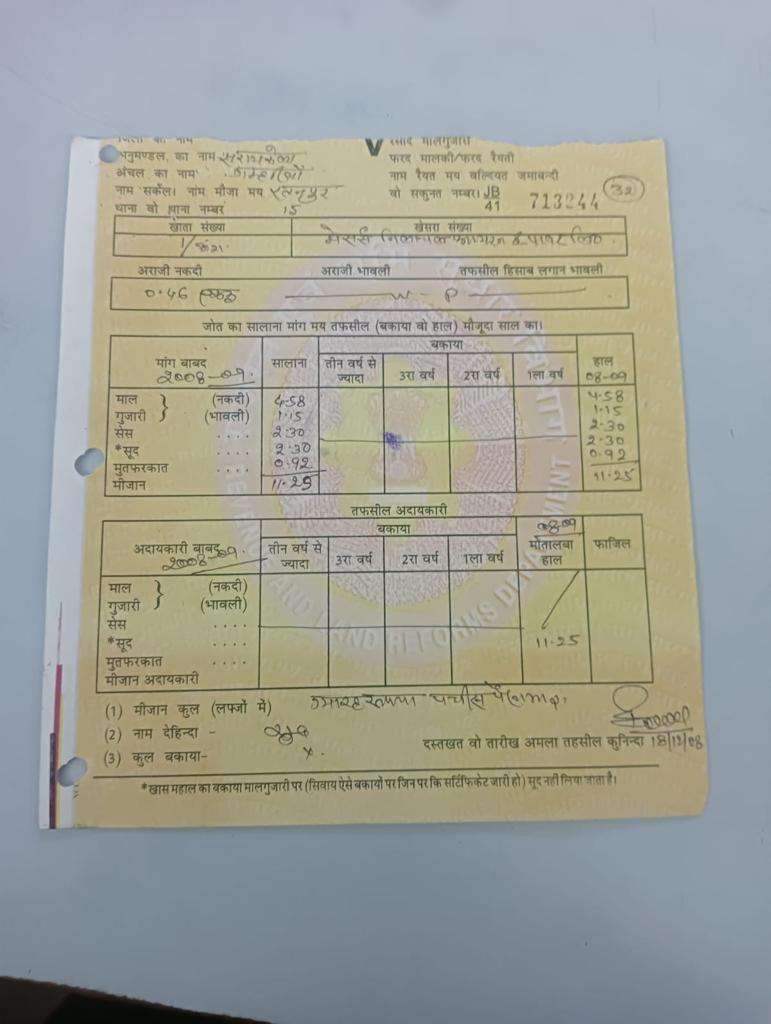 रसीद मालगुजारी
अनुमण्डल का नाम सरायकेला
फरद मालकी/फरद रैयती
अंचल का नाम
नाम रैयत मय वल्दियत जमाबन्दी
नाम सर्कल। नाम मौजा मय रतनपुर
वो सकुनत नम्बर। JB 41 713244 32
थाना वो थाना नम्बर 15
खाता संख्या खेसरा संख्या
1/ मेसर्स पावर लि०
अराजी नकदी अराजी भावली तफसील हिसाब लगान भावली
0.46 W - P
जोत का सालाना मांग मय तफसील (बकाया वो हाल) मौजूदा साल का।
बकाया
मांग बाबद सालाना तीन वर्ष से ज्यादा 3रा वर्ष 2रा वर्ष 1ला वर्ष हाल
2008-09. 08-09
माल (नकदी) 4.58 4.58
गुजारी (भावली) 1.15 1.15
सेस .... 2.30 2.30
*सूद .... 2.30 2.30
मुतफरकात .... 0.92 0.92
मीजान 11.25 11.25
तफसील अदायकारी
बकाया 08-09
अदायकारी बाबद तीन वर्ष से ज्यादा 3रा वर्ष 2रा वर्ष 1ला वर्ष मोतालबा हाल फाजिल
2008-09.
माल (नकदी)
गुजारी (भावली)
सेस ....
*सूद .... 11.25
मुतफरकात ....
मीजान अदायकारी
(1) मीजान कुल (लफ्जों में) ग्यारह रूपया पचीस पैसा मात्र.
(2) नाम देहिन्दा -
दस्तखत वो तारीख अमला तहसील कुनिन्दा 18/12/08
(3) कुल बकाया- x.
*खास महाल का बकाया मालगुजारी पर (सिवाय ऐसे बकायों पर जिन पर कि सर्टिफिकेट जारी हो) सूद नहीं लिया जाता है।